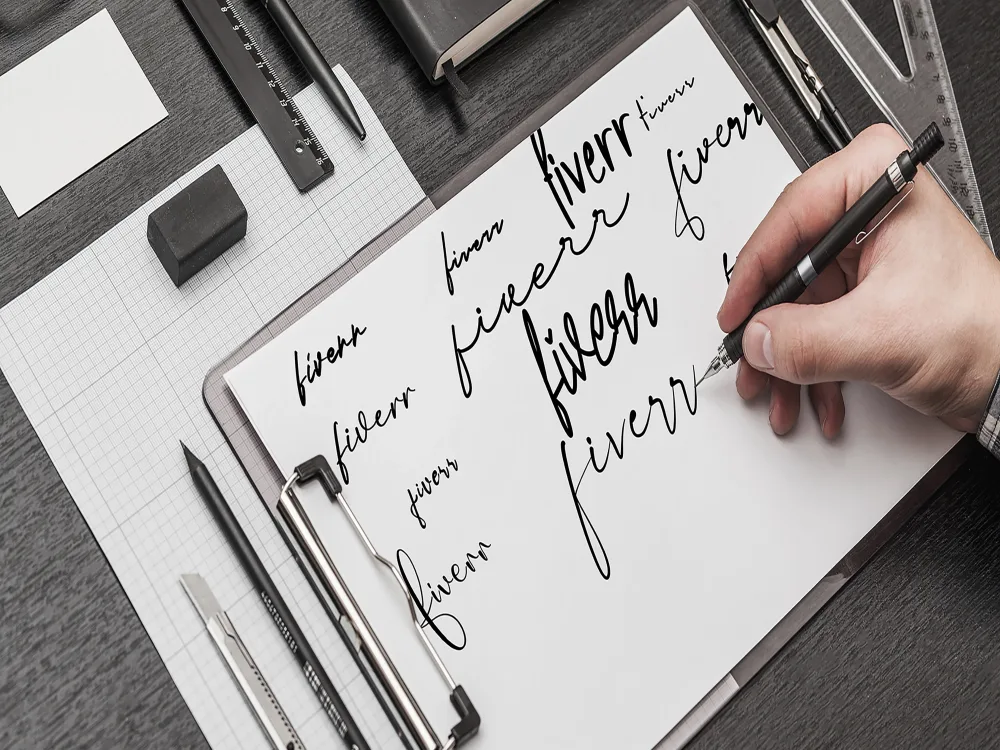 8 9 10 11 12 13 14 15 16
fiverr
fiverr
fiverr
fiverr
fiverr
fiverr
fiverr
fiverr
fiverr
fiverr
fiverr